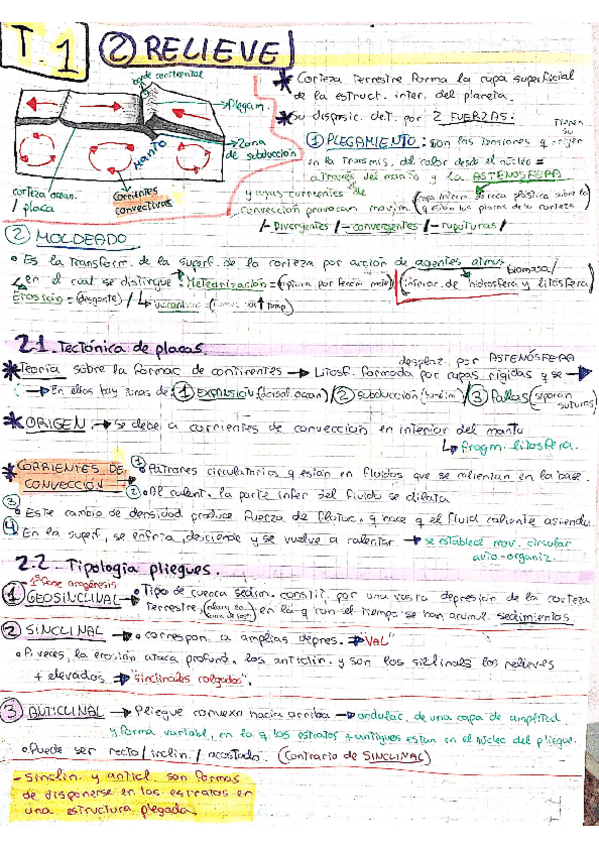 T.1 ② RELIEVE
borde continental
→Plegam.
→Zona
de subducción
MANTO
corteza ocean.
/ placa
Corrientes
convectivas
* Corteza Terrestre forma la capa superficial
de la estruct. inter. del planeta.
* Su disposic. det. por 2 FUERZAS:
① PLEGAMIENTO: son las tensiones q origen
en la transmis. del calor desde el núcleo =
a través del manto y la ASTENOSFERA
y cuyas corrientes de
convección provocan movim.
/- Divergentes /- convergentes /- rupturas/
② MOLDEADO
• Es la transform. de la superf. de la corteza por acción de agentes atmos.
en el cual se distingue: Meteorización=
Erosión= (desgaste) /
(interac. de hidrosfera y litosfera)
biomasa/
2.1. Tectónica de placas.
* Teoría sobre la formac de continentes → Litosf. formada por capas rígidas q se →
desplaz. por ASTENÓSFERA
→ En ellas hay zonas de: ① EXPANSIÓN (dorsal ocean) / ② subducción / ③ Fallas (separan
suturas)
* ORIGEN: → Se debe a corrientes de convección en interior del manto
↳ fragm. litosfera.
* CORRIENTES DE
CONVECCIÓN →
① Patrones circulatorios q están en fluidos que se calientan en la base.
② Al calent. la parte infer del fluido se dilata
③ Este cambio de densidad produce fuerza de flotac. q hace q el fluid caliente asciendu.
④ En la superf, se enfría, desciende y se vuelve a calentar → se establece mov. circular
auto-organiz.
2.2. Tipología pliegues.
1ª fase orogénesis
① GEOSINCLINAL → • Tipo de cuenca sedim. constit. por una vasta depresión de la corteza
terrestre en la q con el tiempo se han acumul. sedimientos
② SINCLINAL → • correspon. a amplias depres. → "VAL"
• A veces, la erosión ataca profund. los anticlin. y son los sinclinales los relieves
+ elevados. → "sinclinales colgados".
③ ANTICLINAL → Pliegue convexo hacia arriba → ondulac. de una capa de amplitud
y forma variabl, en la q, los estratos + antiguos estan en el núcleo del pliegue.
• Puede ser recto / inclin. / acostado. (Contrario de SINCLINAL)
- Sinclin. y anticl. son formas
de disponerse en los estratos en
una estructura plegada.